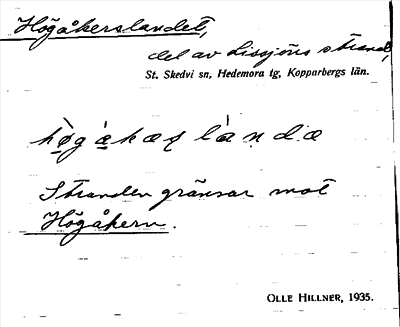 Högåkerslandet,
del av Lissjöns strand,
St. Skedvi sn, Hedemora tg, Kopparbergs län.
Stranden gränsar mot
Högåkern.
OLLE HILLNER, 1935.